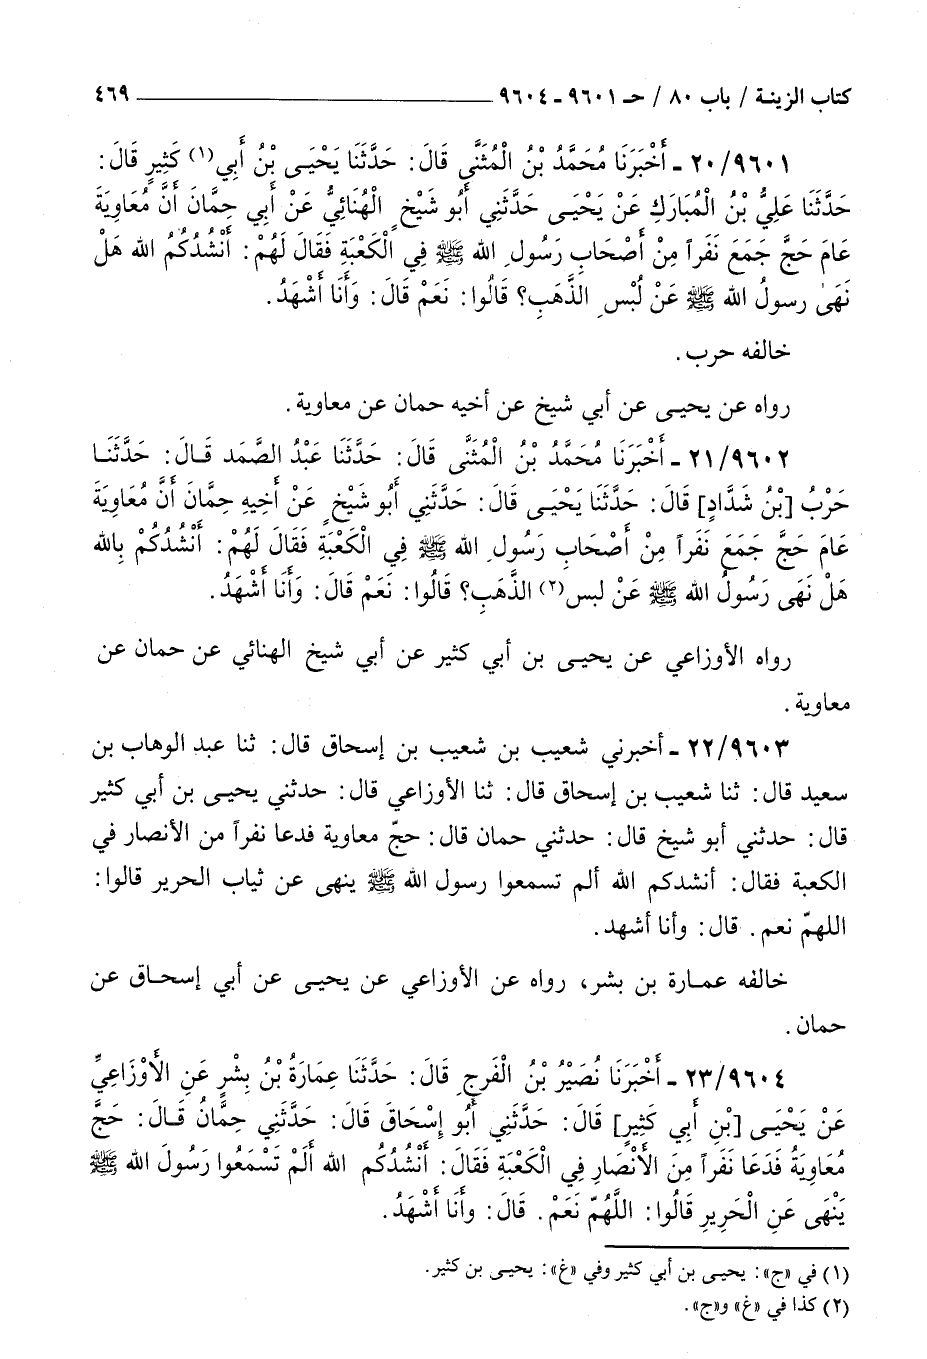 كتاب الزينة / باب ٨٠ / حـ ٩٦٠١ - ٩٦٠٤ ٤٦٩
٢٠/٩٦٠١ - أَخْبَرَنَا مُحَمَّدُ بْنُ الْمُثَنَّى قَالَ: حَدَّثَنَا يَحْيَى بْنُ أَبِي(١) كَثِيرٍ قَالَ:
حَدَّثَنَا عَلِيُّ بْنُ الْمُبَارَكِ عَنْ يَحْيَى حَدَّثَنِي أَبُو شَيْخٍ الْهُنَائِيُّ عَنْ أَبِي حِمَّانَ أَنَّ مُعَاوِيَةَ
عَامَ حَجَّ جَمَعَ نَفَراً مِنْ أَصْحَابِ رَسُولِ الله ﷺ فِي الْكَعْبَةِ فَقَالَ لَهُمْ: أَنْشُدُكُمُ الله هَلْ
نَهَىٰ رسولُ الله ﷺ عَنْ لُبْسِ الذَّهَبِ؟ قَالُوا: نَعَمْ قَالَ: وَأَنَا أَشْهَدُ.
خالفه حرب.
رواه عن يحيى عن أبي شيخ عن أخيه حمان عن معاوية.
٢١/٩٦٠٢ - أَخْبَرَنَا مُحَمَّدُ بْنُ الْمُثَنَّى قَالَ: حَدَّثَنَا عَبْدُ الصَّمَد قَـالَ: حَدَّثَنَـا
حَرْبُ [بْنُ شَدَّادٍ] قَالَ: حَدَّثَنَا يَحْيَى قَالَ: حَدَّثَنِي أَبُو شَيْخٍ عَنْ أَخِيهِ حِمَّانَ أَنَّ مُعَاوِيَةَ
عَامَ حَجَّ جَمَعَ نَفَراً مِنْ أَصْحَابِ رَسُولِ الله ﷺ فِي الْكَعْبَةِ فَقَالَ لَهُمْ: أَنْشُدُكُمْ بِالله
هَلْ نَهَى رَسُولُ الله ﷺ عَنْ لبس(٢) الذَّهَبِ؟ قَالُوا: نَعَمْ قَالَ: وَأَنَا أَشْهَدُ.
رواه الأوزاعي عن يحيى بن أبي كثير عن أبي شيخ الهنائي عن حمان عن
معاوية.
٢٢/٩٦٠٣ - أخبرني شعيب بن شعيب بن إسحاق قال: ثنا عبد الوهاب بن
سعيد قال: ثنا شعيب بن إسحاق قال: ثنا الأوزاعي قال: حدثني يحيى بن أبي كثير
قال: حدثني أبو شيخ قال: حدثني حمان قال: حجّ معاوية فدعا نفراً من الأنصار في
الكعبة فقال: أنشدكم الله ألم تسمعوا رسول الله ﷺ ينهى عن ثياب الحرير قالوا:
اللهمّ نعم. قال: وأنا أشهد.
خالفه عمـارة بن بشر، رواه عن الأوزاعي عن يحيى عن أبي إسحـاق عن
حمان.
٢٣/٩٦٠٤ - أَخْبَرَنَا نُصَيْرُ بْنُ الْفَرَجِ قَالَ: حَدَّثَنَا عِمَارَةُ بْنُ بِشْرٍ عَنِ الأَوْزَاعِيِّ
عَنْ يَحْيَى [بْنِ أَبِي كَثِيرٍ] قَالَ: حَدَّثَنِي أَبُو إِسْحَاقَ قَالَ: حَدَّثَنِي حِمَّانُ قَـالَ: حَجَّ
مُعَاوِيَةُ فَدَعَا نَفَراً مِنَ الأَنْصَارِ فِي الْكَعْبَةِ فَقَالَ: أَنْشُدُكُم الله أَلَمْ تَسْمَعُوا رَسُولَ الله ﷺ
يَنْهَى عَنِ الْحَرِيرِ قَالُوا: اللَّهُمّ نَعَمْ. قَالَ: وأَنَا أَشْهَدُ.
(١) في «ج»: يحيى بن أبي كثير وفي «غ»: يحيى بن كثير.
(٢) كذا في «غ» و«ج».